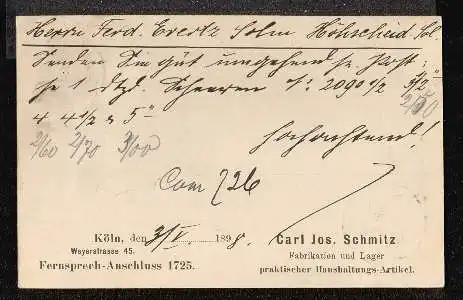 Herrn Ferd. Evertz Sohn Höhscheid Sol.
Senden Sie gut umgehend p. Post:
je 1 dtzd. Scheeren No: 2090 1/2 5 1/2"
2/50
4 4 1/2 & 5"
2/60 2/70 3/00
hochachtend!
Com 726
Köln, den 3/V. 1898.
Weyerstrasse 45.
Fernsprech-Anschluss 1725.
Carl Jos. Schmitz
Fabrikation und Lager
praktischer Haushaltungs-Artikel.